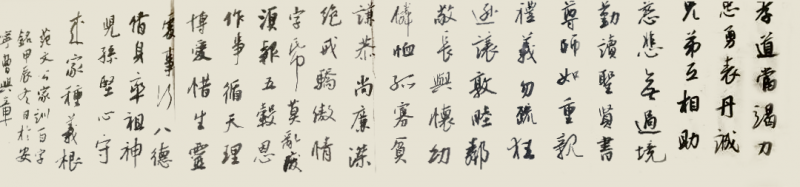 孝道當竭力
忠勇表丹誠
兄弟互相助
慈悲無過境
勤讀聖賢書
尊師如重親
禮義勿疏狂
遜讓敦睦鄰
敬長與懷幼
憐恤孤寡貧
謙恭尚廉潔
絕戒驕傲情
字紙莫亂廢
須報五穀恩
作事循天理
博愛惜生靈
處事行八德
脩身率祖神
児孫堅心守
家種義根
范文公家訓百字
銘甲辰冬日於安
寧曾興章